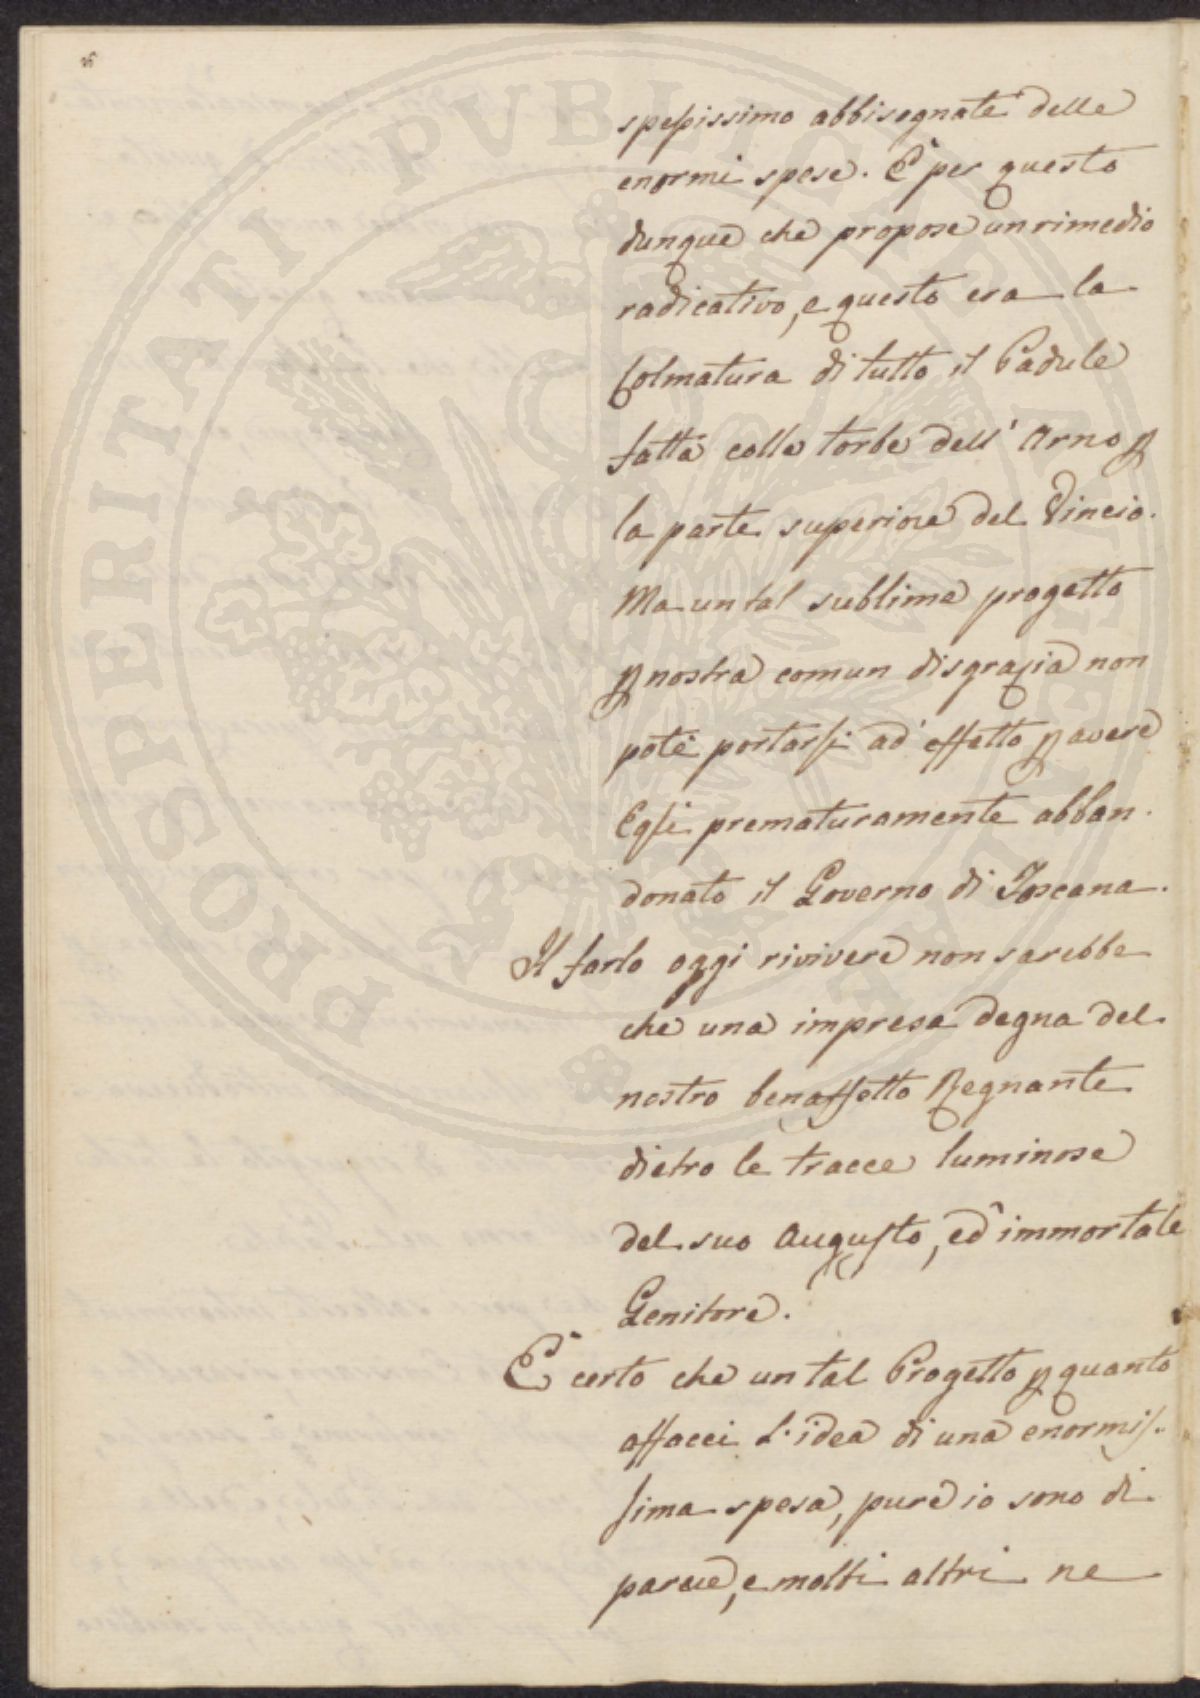 spessissimo abbisognate delle
enormi spese. È per questo
dunque che propose un rimedio
radicativo, e questo era la
Colmatura di tutto il Padule
fatta colle torbe dell' Arno p
la parte superiore del Vincio.
Ma un tal sublime progetto
p nostra comun disgrazia non
potè portarsi ad effetto p avere
Egli prematuramente abban.
donato il Governo di Toscana.
Il farlo oggi rivivere non sarebbe
che una impresa degna del
nostro benaffetto Regnante
dietro le tracce luminose
del suo Augusto, ed immortale
Genitore.
È certo che un tal Progetto p quanto
affacci l'idea di una enormis.
sima spesa, pure io sono di
parere, e molti altri ne
PROSPERITATI PVBLICAE